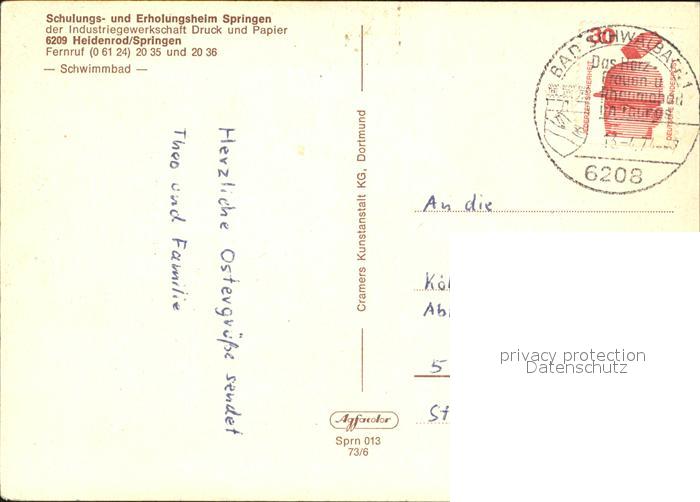 Schulungs- und Erholungsheim Springen
der Industriegewerkschaft Druck und Papier
6209 Heidenrod/Springen
Fernruf (0 61 24) 20 35 und 20 36
— Schwimmbad —
Herzliche Ostergrüße sendet
Theo und Familie
Cramers Kunstanstalt KG, Dortmund
Agfacolor
Sprn 013
73/6
30
BAD SCHWALBACH 1
Das Herz-
Frauen-u
Rheumabad
im Taunus
6208
DEUTSCHE BUNDESPOST
An die
Köl
Ab
5
St
privacy protection
Datenschutz